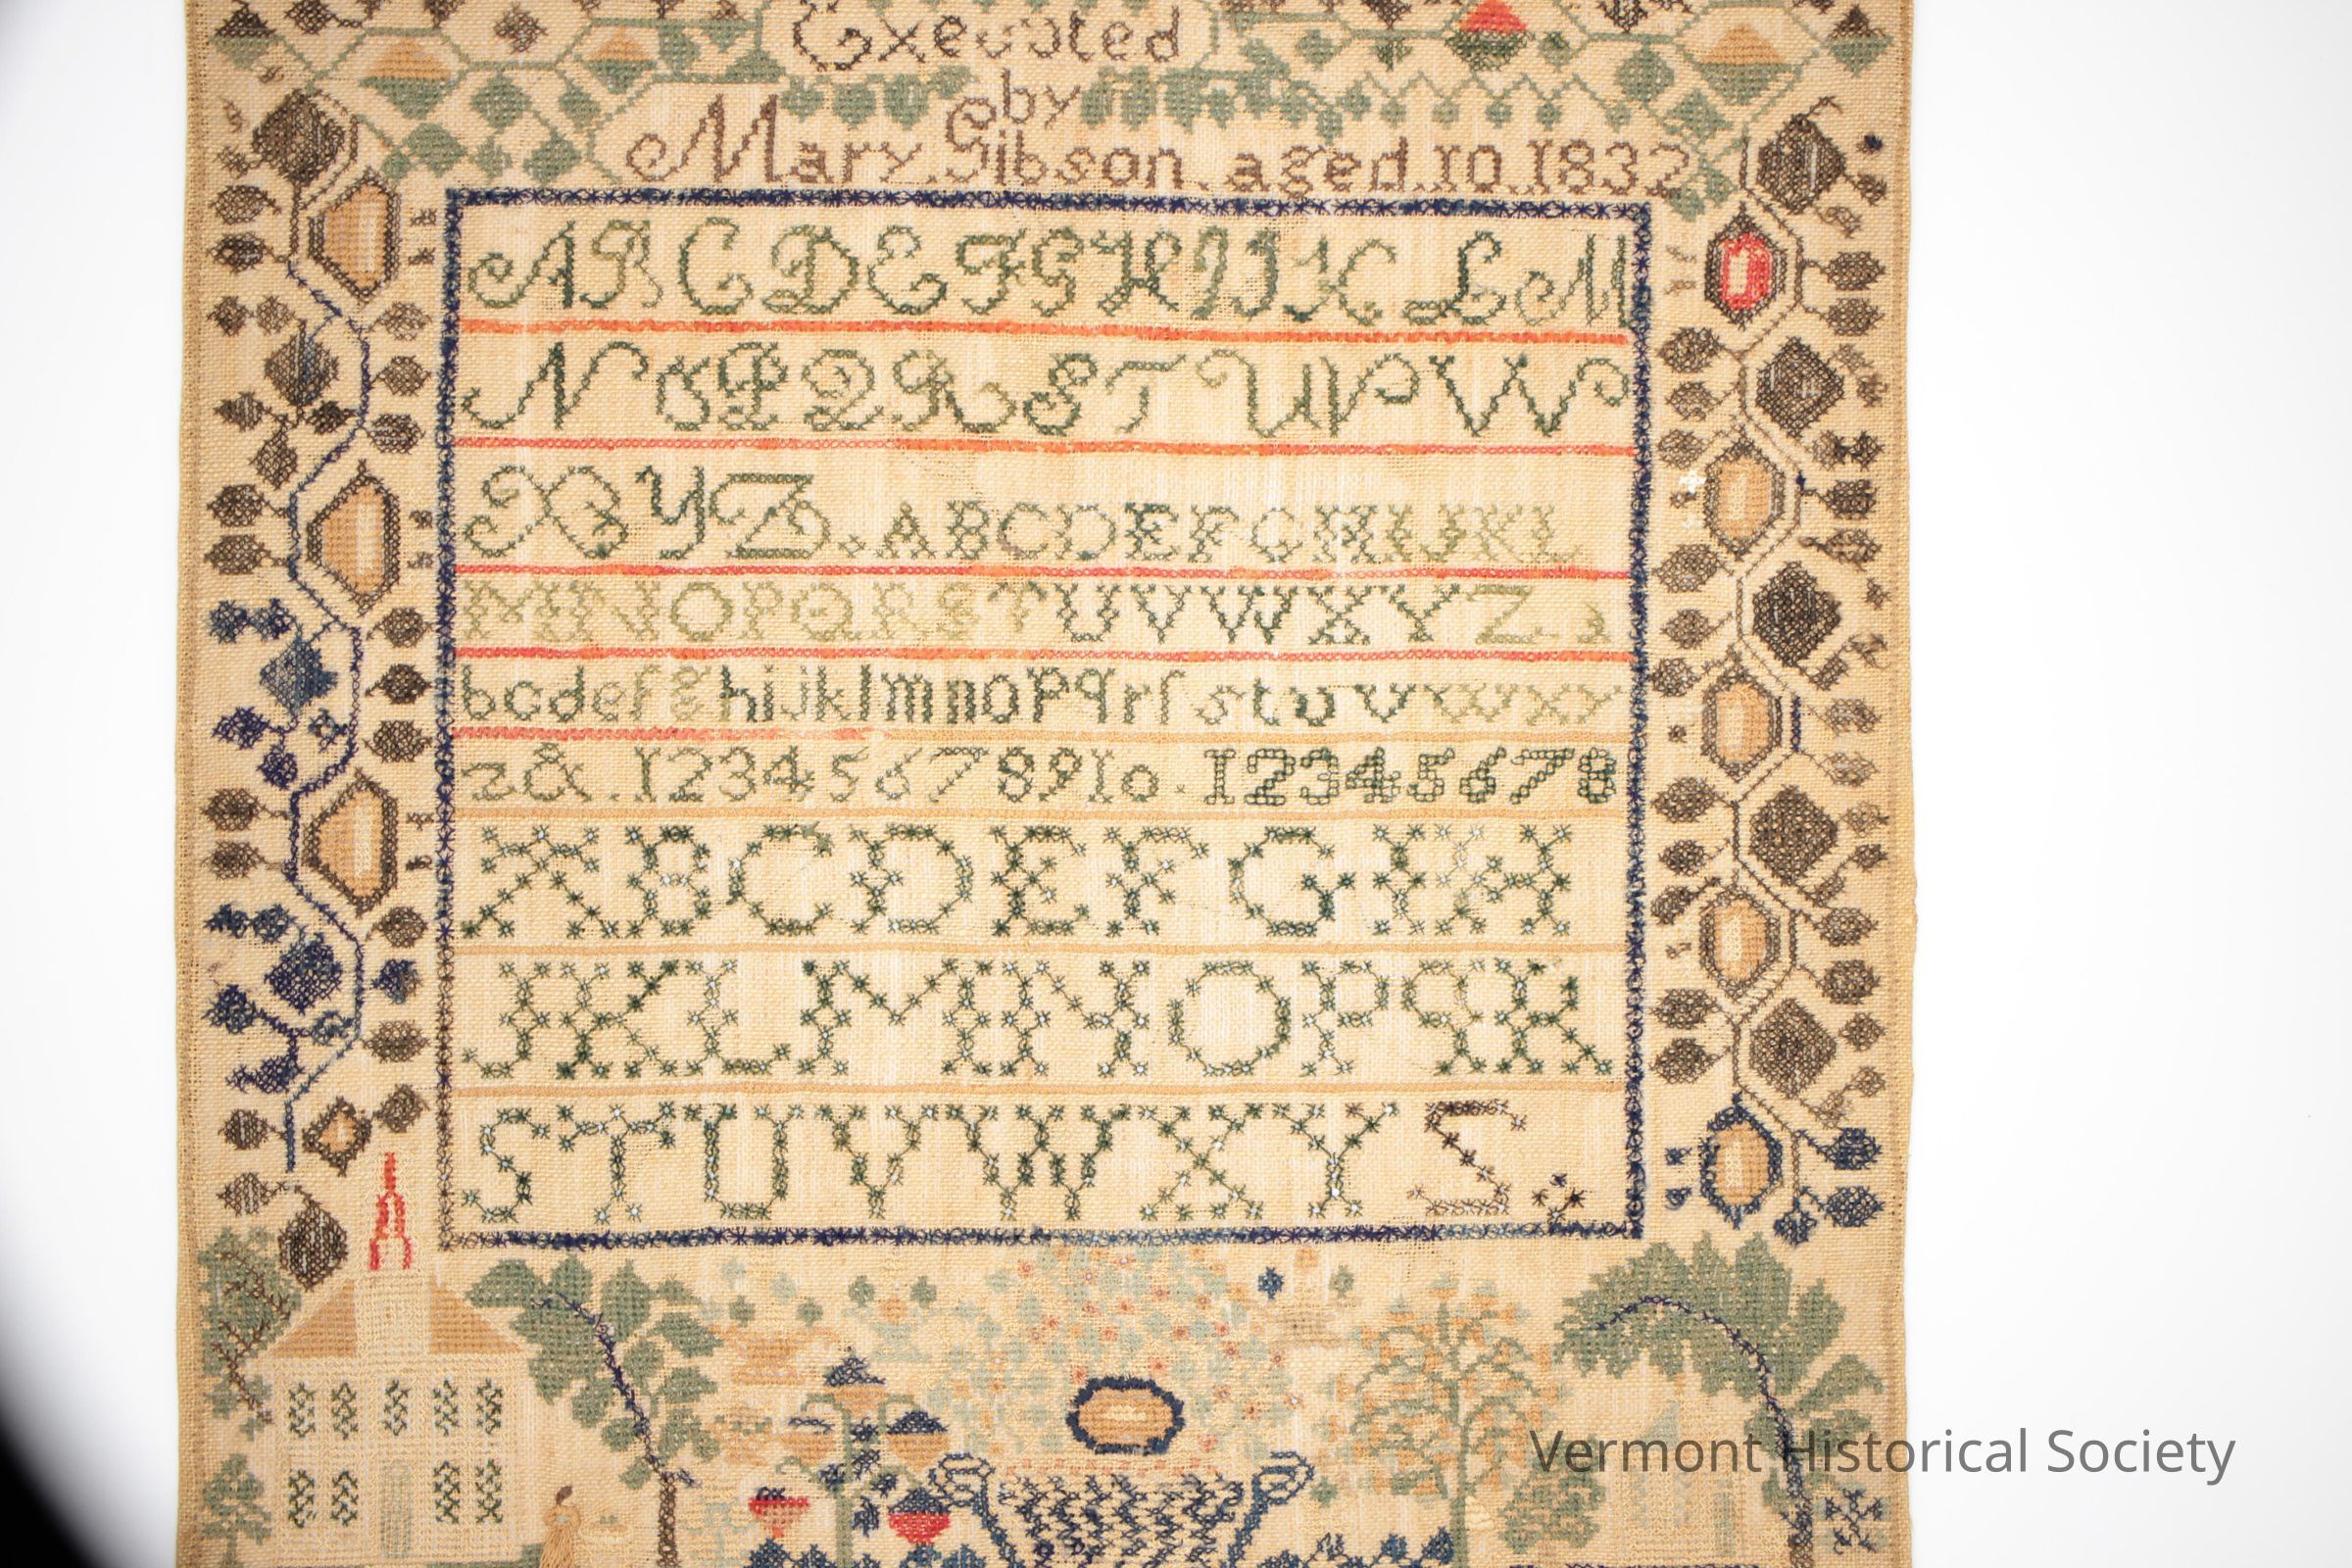 Executed
by
Mary.Gibson.aged.10.1832
ABCDEFGHIJKLM
NOPQRSTUVW
XYZ.ABCDEFGHIJKL
MNOPQRSTUVWXYZ.a
bcdefghijklmnopqrſstuvwxy
z&.12345678910.12345678
ABCDEFGHI
JKLMNOPQR
STUVWXYZ.
Vermont Historical Society